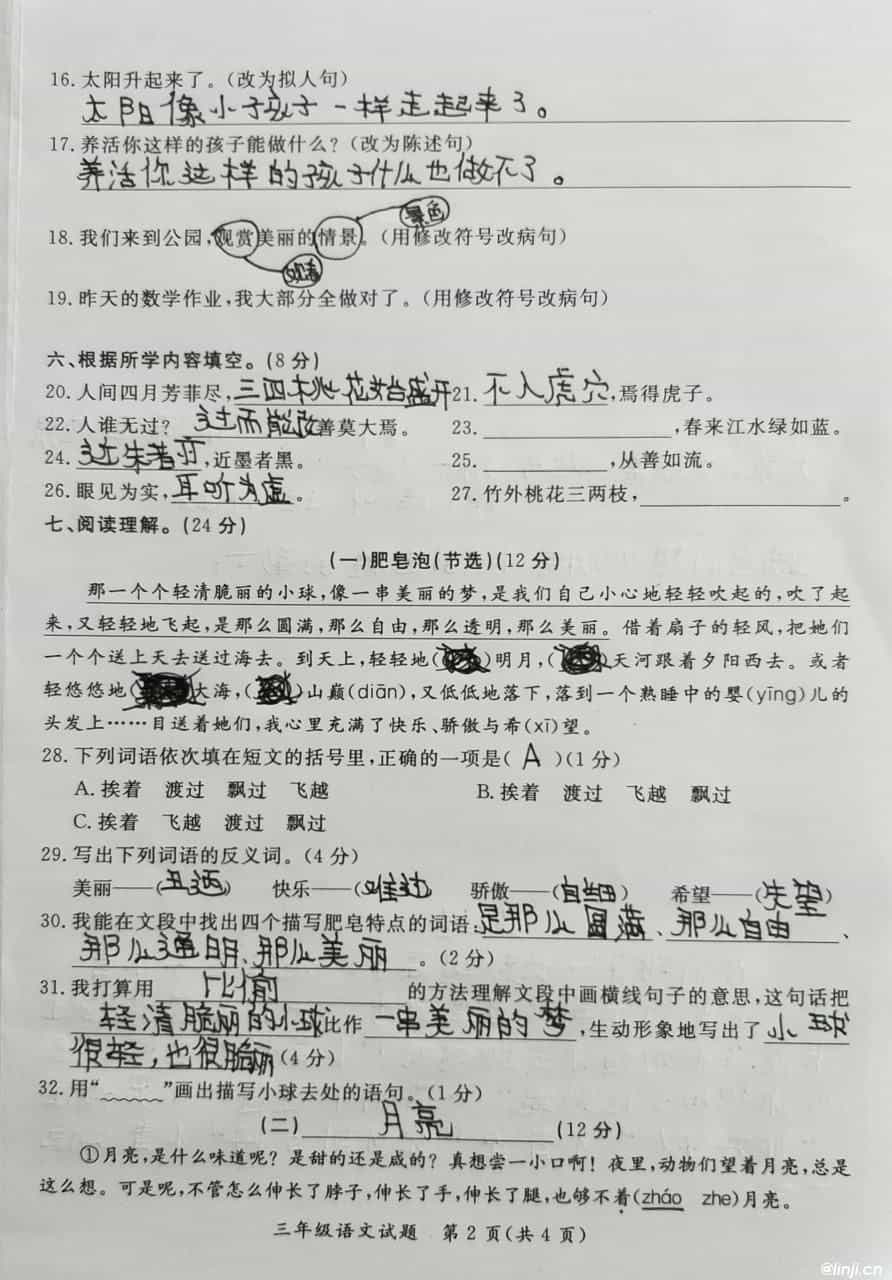 16. 太阳升起来了。(改为拟人句)
太阳像小孩子一样走起来了。
17. 养活你这样的孩子能做什么?(改为陈述句)
养活你这样的孩子什么也做不了。
景色
18. 我们来到公园,观赏美丽的情景。(用修改符号改病句)
观看
19. 昨天的数学作业,我大部分全做对了。(用修改符号改病句)
六、根据所学内容填空。(8 分)
20. 人间四月芳菲尽,三四桃花始盛开 21. 不入虎穴,焉得虎子。
22. 人谁无过? 过而能改善莫大焉。 23. ,春来江水绿如蓝。
24. 近朱者赤,近墨者黑。 25. ,从善如流。
26. 眼见为实,耳听为虚。 27. 竹外桃花三两枝, 。
七、阅读理解。(24 分)
(一)肥皂泡(节选)(12 分)
那一个个轻清脆丽的小球,像一串美丽的梦,是我们自己小心地轻轻吹起的,吹了起
来,又轻轻地飞起,是那么圆满,那么自由,那么透明,那么美丽。借着扇子的轻风,把她们
一个个送上天去送过海去。到天上,轻轻地( )明月,( )天河跟着夕阳西去。或者
轻悠悠地( )大海,( )山巅(diān),又低低地落下,落到一个熟睡中的婴(yīng)儿的
头发上……目送着她们,我心里充满了快乐、骄傲与希(xī)望。
28. 下列词语依次填在短文的括号里,正确的一项是( A )(1 分)
A. 挨着 渡过 飘过 飞越 B. 挨着 渡过 飞越 飘过
C. 挨着 飞越 渡过 飘过
29. 写出下列词语的反义词。(4 分)
美丽——(丑陋) 快乐——(难过) 骄傲——(自卑) 希望——(失望)
30. 我能在文段中找出四个描写肥皂特点的词语:是那么圆满、那么自由、
那么透明、那么美丽。(2 分)
31. 我打算用 比偷 的方法理解文段中画横线句子的意思,这句话把
轻清脆丽的小球比作 一串美丽的梦,生动形象地写出了 小球
很轻,也很脆丽 (4 分)
32. 用“﹏﹏﹏”画出描写小球去处的语句。(1 分)
(二) 月亮 (12 分)
①月亮,是什么味道呢?是甜的还是咸的?真想尝一小口啊!夜里,动物们望着月亮,总是
这么想。可是呢,不管怎么伸长了脖子,伸长了手,伸长了腿,也够不着(zháo zhe)月亮。
三年级语文试题 第 2 页(共 4 页)
@linji.cn